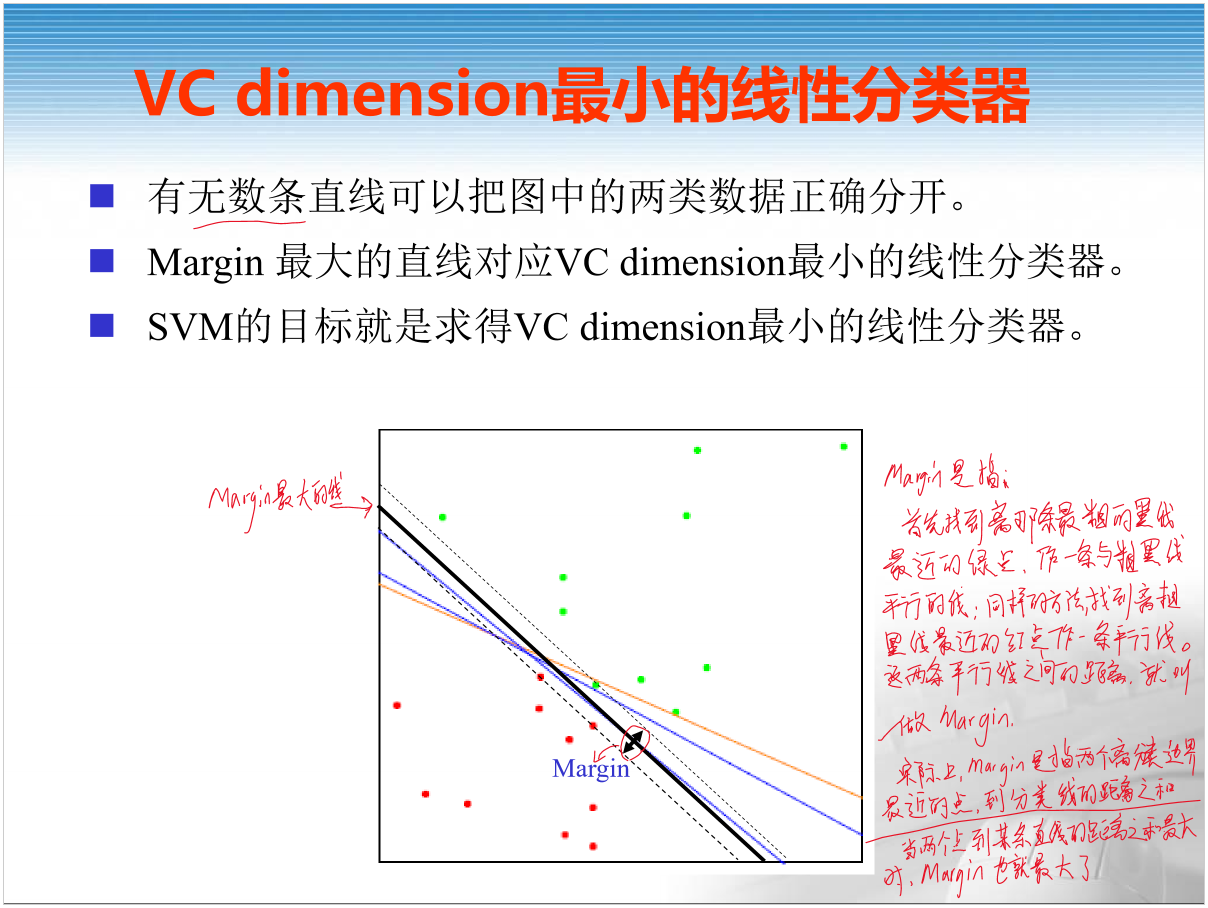 VC dimension最小的线性分类器
有无数条直线可以把图中的两类数据正确分开。
Margin 最大的直线对应VC dimension最小的线性分类器。
SVM的目标就是求得VC dimension最小的线性分类器。
Margin最大的线
Margin
Margin是指:
首先找到离那条最粗的黑线
最近的绿点,作一条与粗黑线
平行的线;同样的方法,找到离粗
黑线最近的红点作一条平行线。
这两条平行线之间的距离,就叫
做 Margin.
实际上,Margin是指两个离 边界
最近的点,到分类线的距离之和
当两个点到某条直线的距离之和最大
时,Margin也就最大了